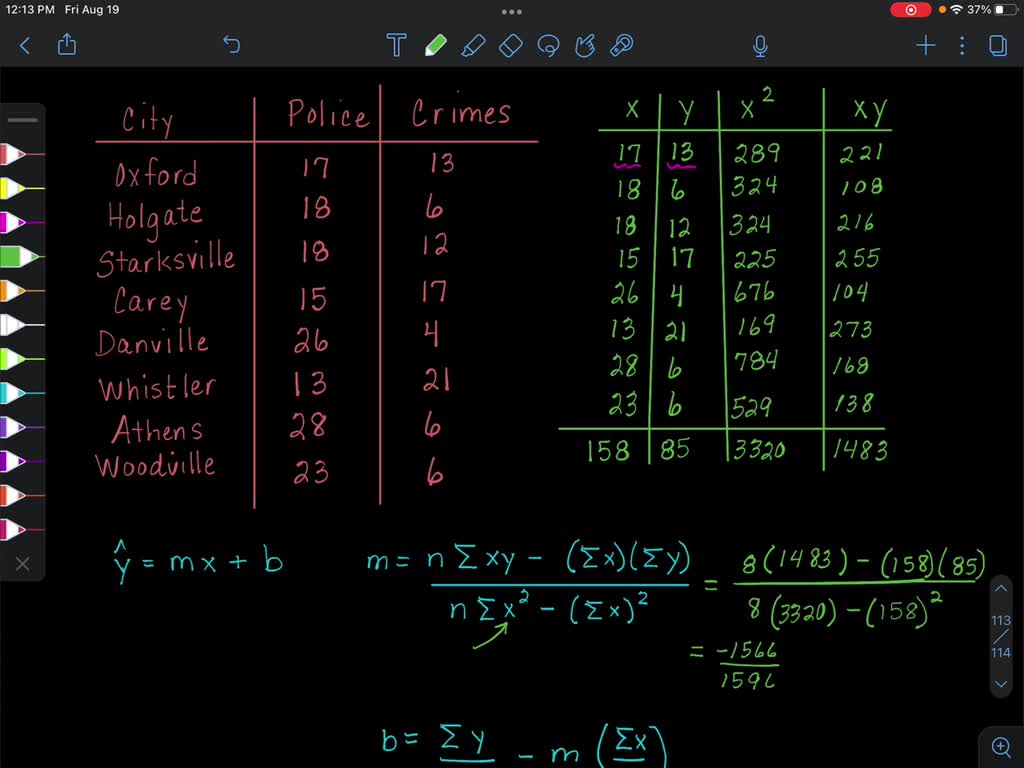 12:13 PM Fri Aug 19
37%
City Police Crimes
Oxford 17 13
Holgate 18 6
Starksville 18 12
Carey 15 17
Danville 26 4
Whistler 13 21
Athens 28 6
Woodville 23 6
x y x² xy
17 13 289 221
18 6 324 108
18 12 324 216
15 17 225 255
26 4 676 104
13 21 169 273
28 6 784 168
23 6 529 138
158 85 3320 1483
ŷ = mx + b
m = n Σxy - (Σx)(Σy) / n Σx² - (Σx)² = 8(1483) - (158)(85) / 8(3320) - (158)²
= -1566 / 1596
b = Σy - m (Σx)
113
/
114